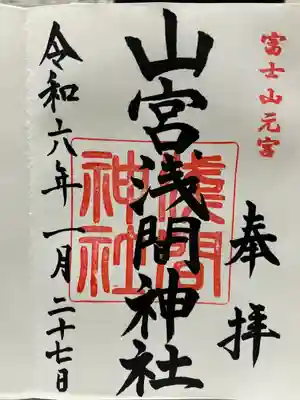 富士山元宮
奉拝
山宮浅間神社
淺間
神社
令和六年一月二十七日